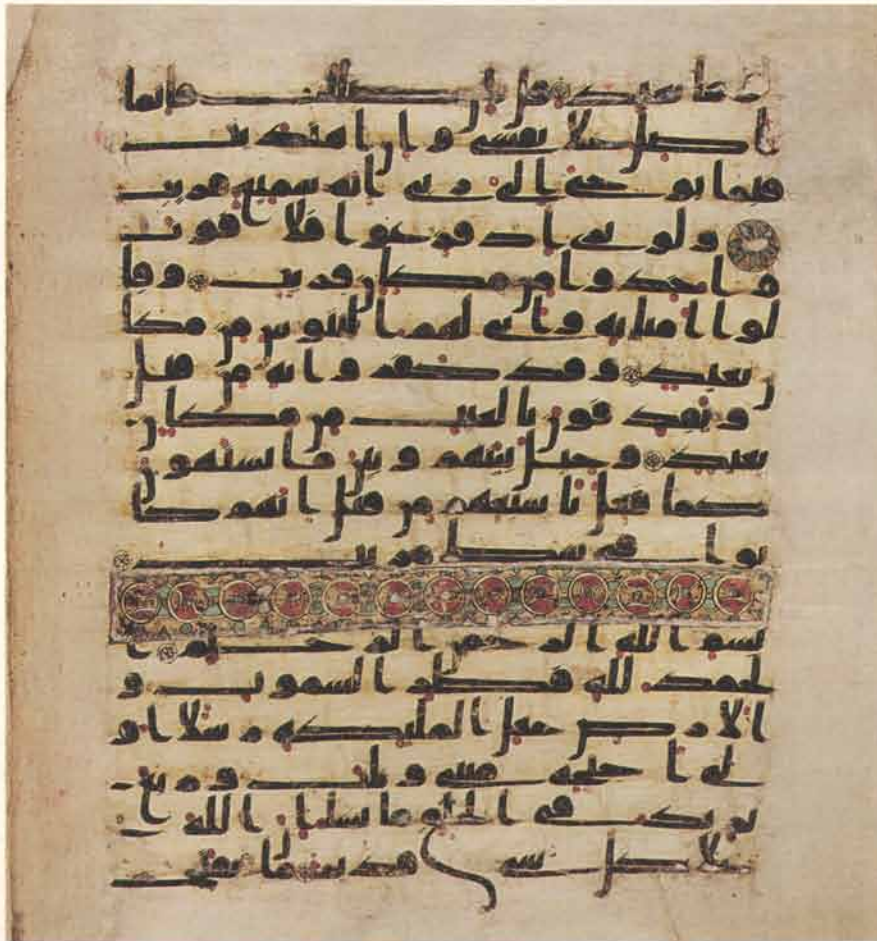 وما يعيد قل ان ضللت فانما
ا ضل على نفسي و ان اهتديت
فبما يوحي الي ربي انه سميع قريب
ولو ترى اذ فزعوا فلا فوت
و اخذوا من مكان قريب وقا
لوا امنا به وانى لهم التناوش من مكا
ن بعيد وقد كفروا به من قبل
ويقذفون بالغيب من مكان
بعيد وحيل بينهم وبين ما يشتهون
كما فعل باشيعهم من قبل انهم كا
نوا في شك مريب
بسم الله الرحمن الرحيم ا
لحمد لله فطر السموت و
الارض جعل الملئكة رسلا او
لي اجنحة مثنى وثلث وربع
يزيد في الخلق ما يشا ان الله
على كل شي قدير ما يفتح